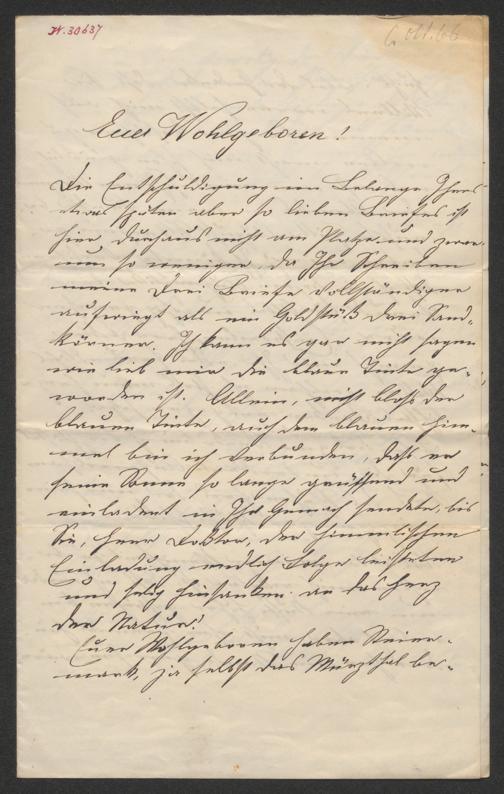 N. 30637
6. Okt. 66
Euer Wohlgeboren!
Die Entschuldigung im Belange Ihres
etwas späten aber so lieben Briefes ist
hier durchaus nicht am Platze und zwar
um so weniger, da Ihr Schreiben
meine drei Briefe vollständiger
aufwiegt als ein Goldstück drei Sand-
körner. Ich kann es gar nicht sagen
wie lieb mir die blaue Tinte ge-
worden ist. Allein, nicht bloß der
blauen Tinte, auch dem blauen Him-
mel bin ich verbunden, daß er
seine Sonne so lange grüssend und
einladend in Ihr Gemach sendete, bis
Sie, Herr Doktor, der himmlischen
Einladung endlich Folge leisteten
und selig hinsanken an das Herz
der Natur!
Euer Wohlgeboren haben Steier-
mark, ja selbst das Mürzthal be-